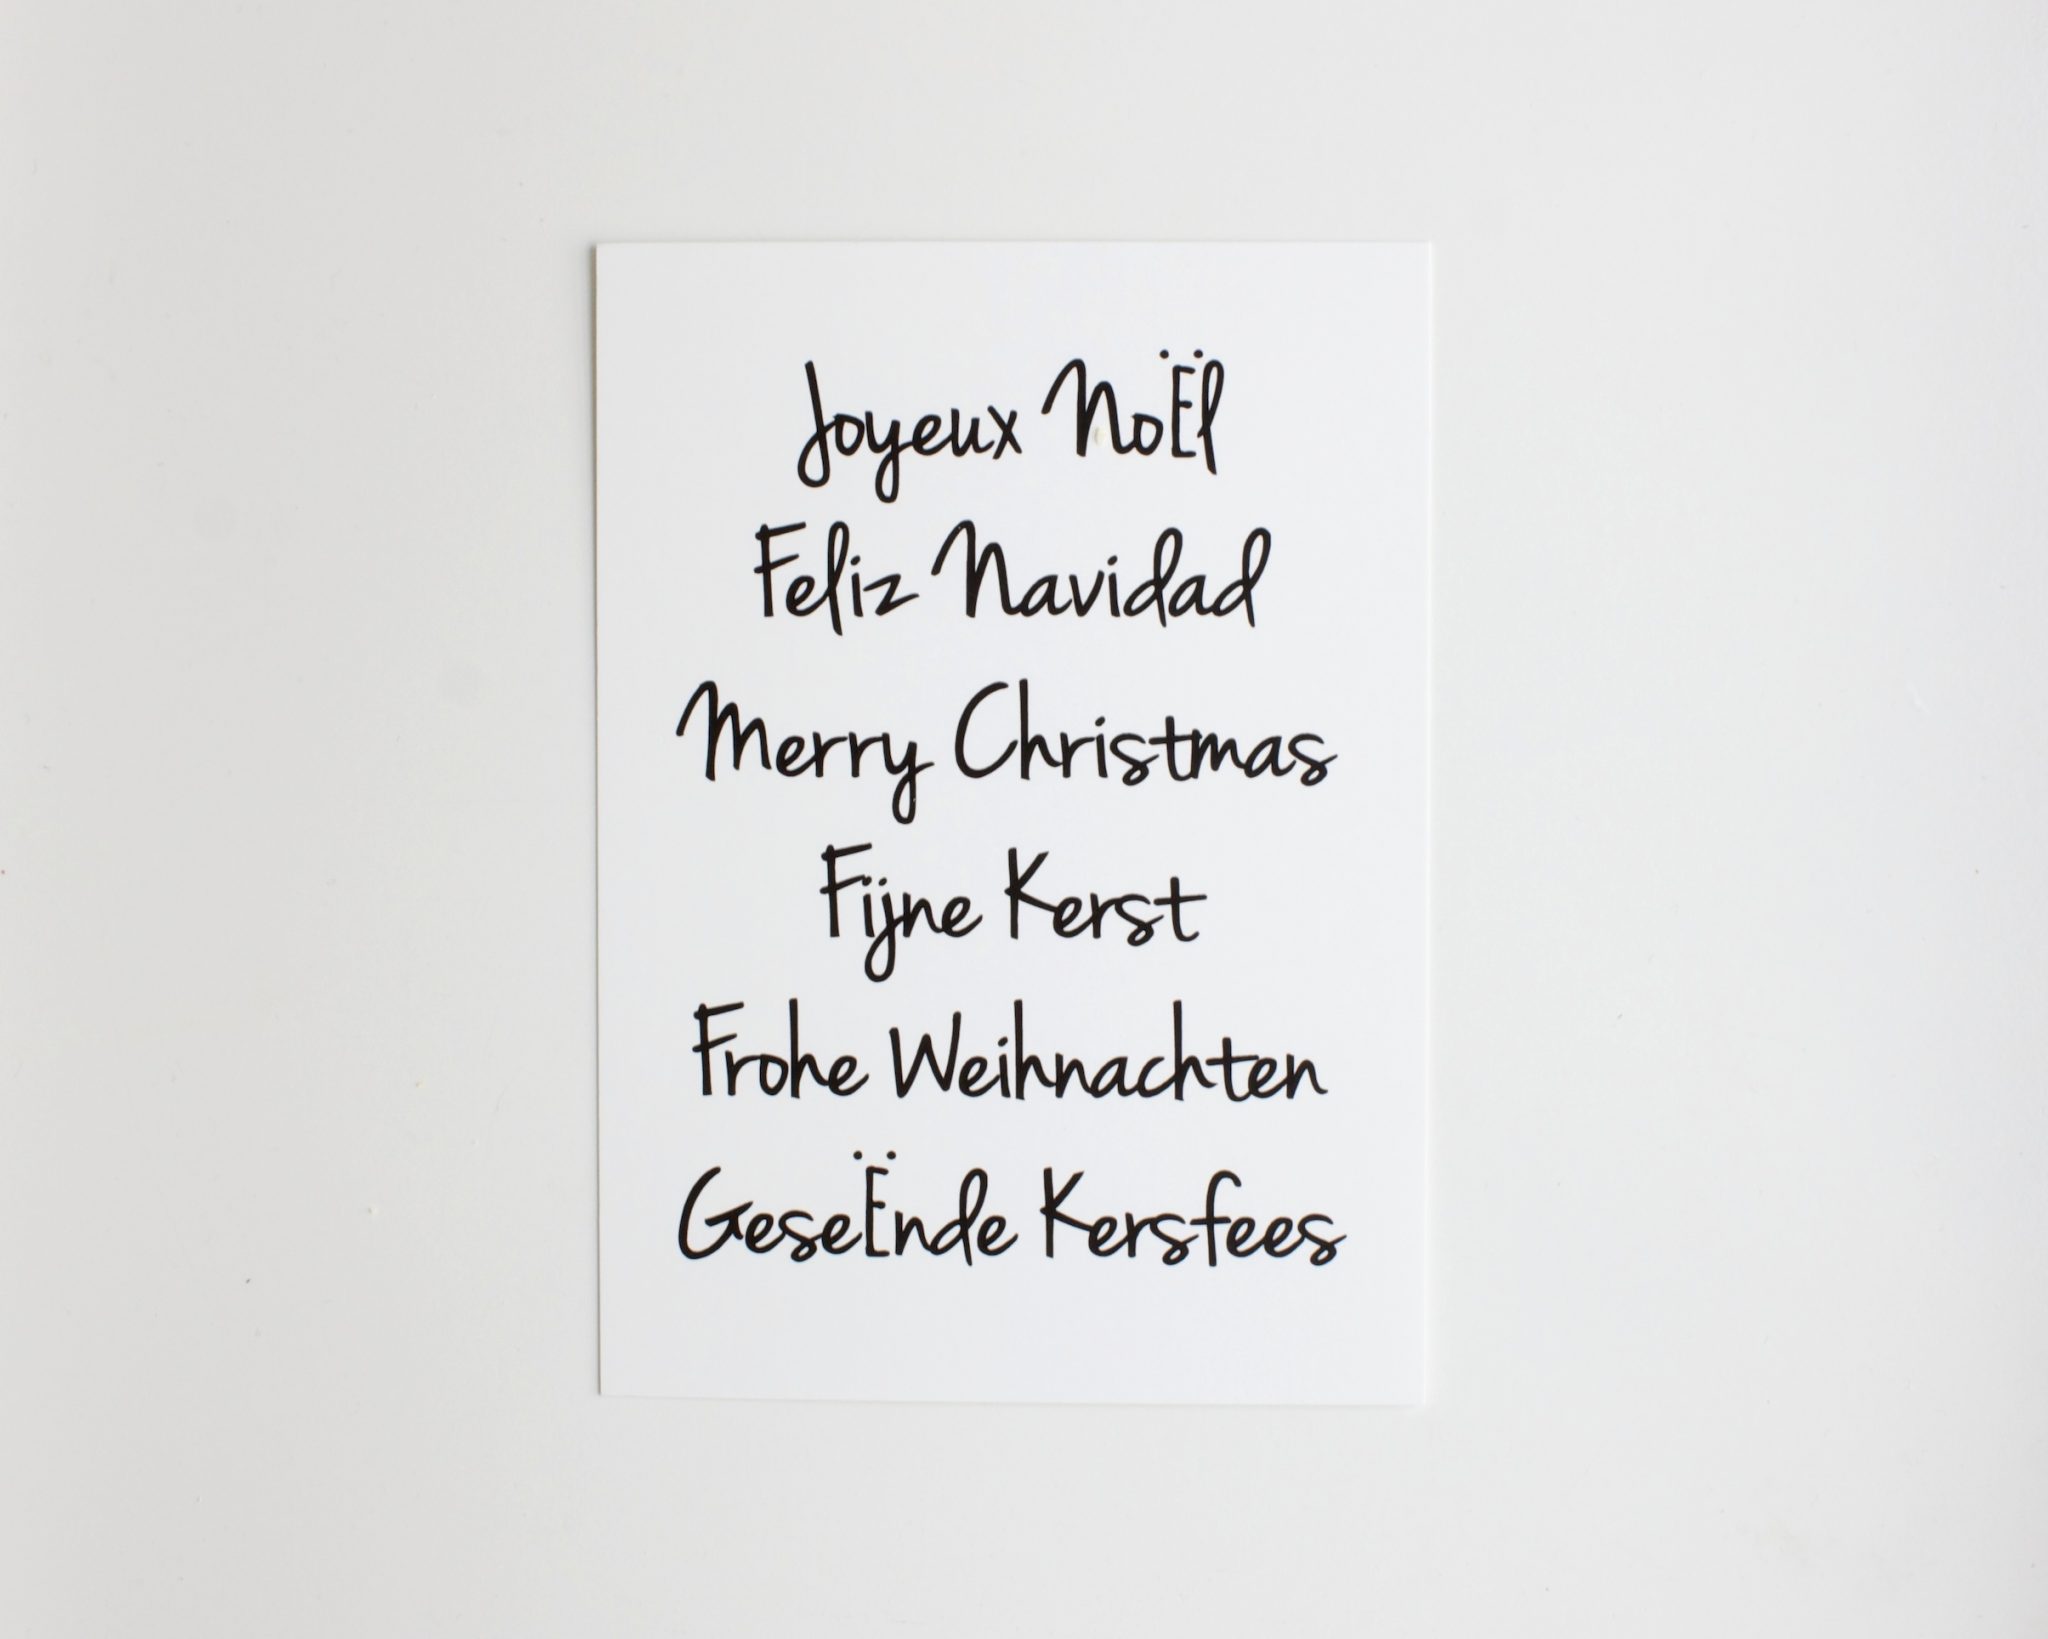 Joyeux NoËl
Feliz Navidad
Merry Christmas
Fijne Kerst
Frohe Weihnachten
GeseËnde Kersfees